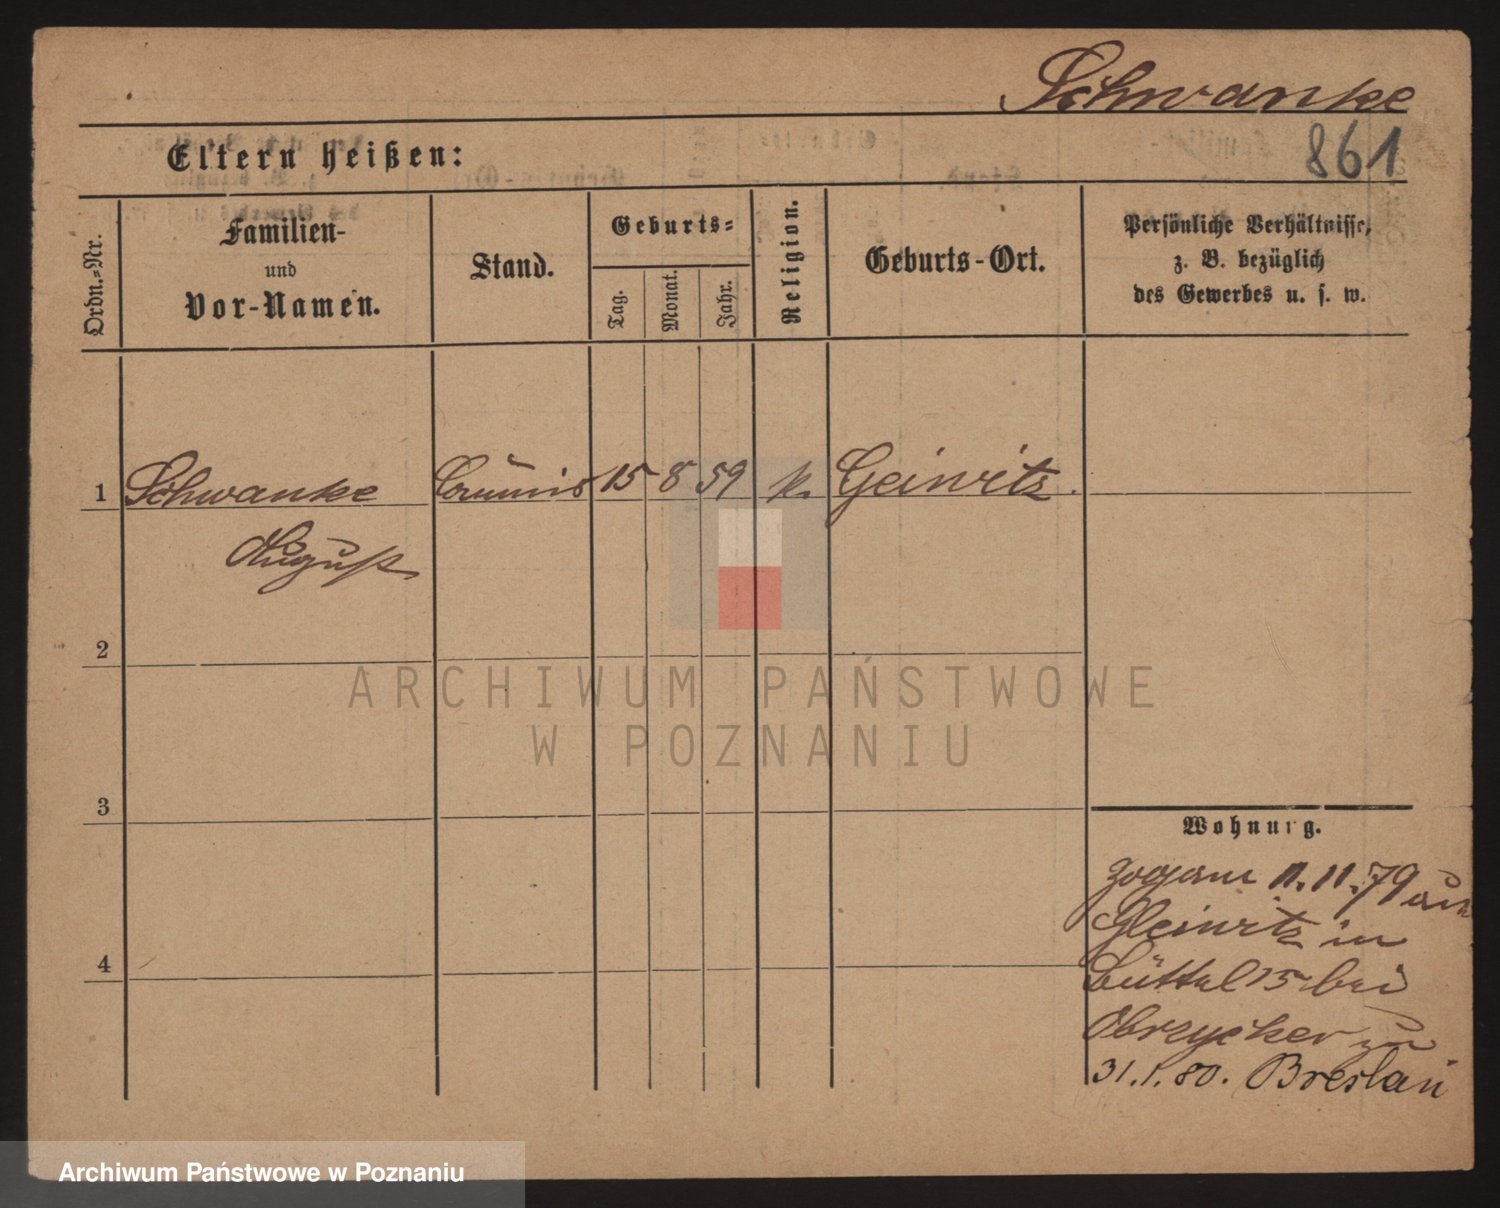 Schwanke
861
Eltern heißen:
Ordn.-Nr.
Familien-
und
Vor-Namen.
Stand.
Geburts-
Tag.
Monat.
Jahr.
Religion.
Geburts-Ort.
Persönliche Verhältnisse,
z. B. bezüglich
des Gewerbes u. s. w.
1 Schwanke Commis 15 8 59 k. Geiwitz.
August
2
3
4
Wohnung.
zogan 11. 11. 79 aus
Gleiwitz in
Büttel 15 bei
Obrzycker zu
31. 1. 80. Breslau
ARCHIWUM PAŃSTWOWE
W POZNANIU
Archiwum Państwowe w Poznaniu